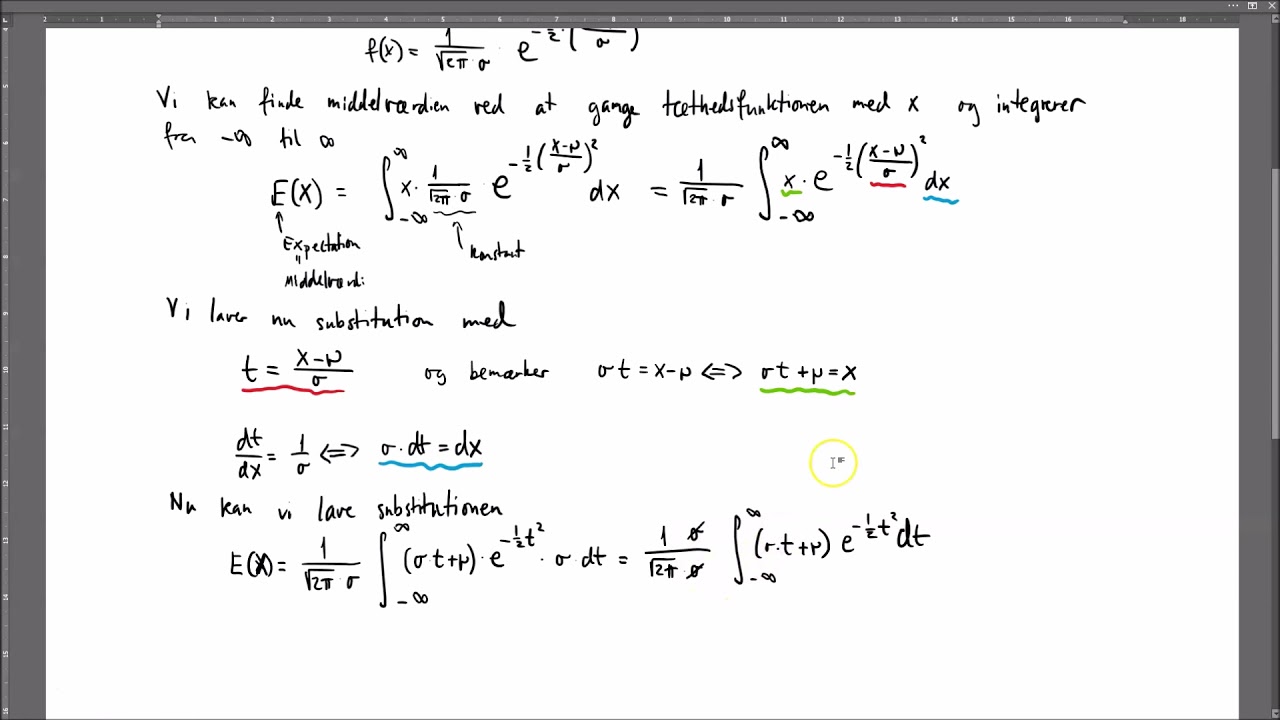 f(x) = 1/(√2π · σ) · e^(-1/2 (     /σ)
Vi kan finde middelværdien ved at gange tæthedsfunktionen med x og integrerer
fra -∞ til ∞
E(X) = ∫_{-∞}^{∞} x · 1/(√2π · σ) e^(-1/2 ((x-μ)/σ)²) dx = 1/(√2π · σ) ∫_{-∞}^{∞} x · e^(-1/2 ((x-μ)/σ)²) dx
↑ Expectation
" middelværdi
↑ konstant
Vi laver nu substitution med
t = (x-μ)/σ og bemærker σt = x-μ ⟺ σt + μ = x
dt/dx = 1/σ ⟺ σ · dt = dx
Nu kan vi lave substitutionen
E(X) = 1/(√2π · σ) ∫_{-∞}^{∞} (σt+μ) · e^(-1/2 t²) · σ dt = 1 σ/(√2π · σ) ∫_{-∞}^{∞} (σ·t+μ) e^(-1/2 t²) dt